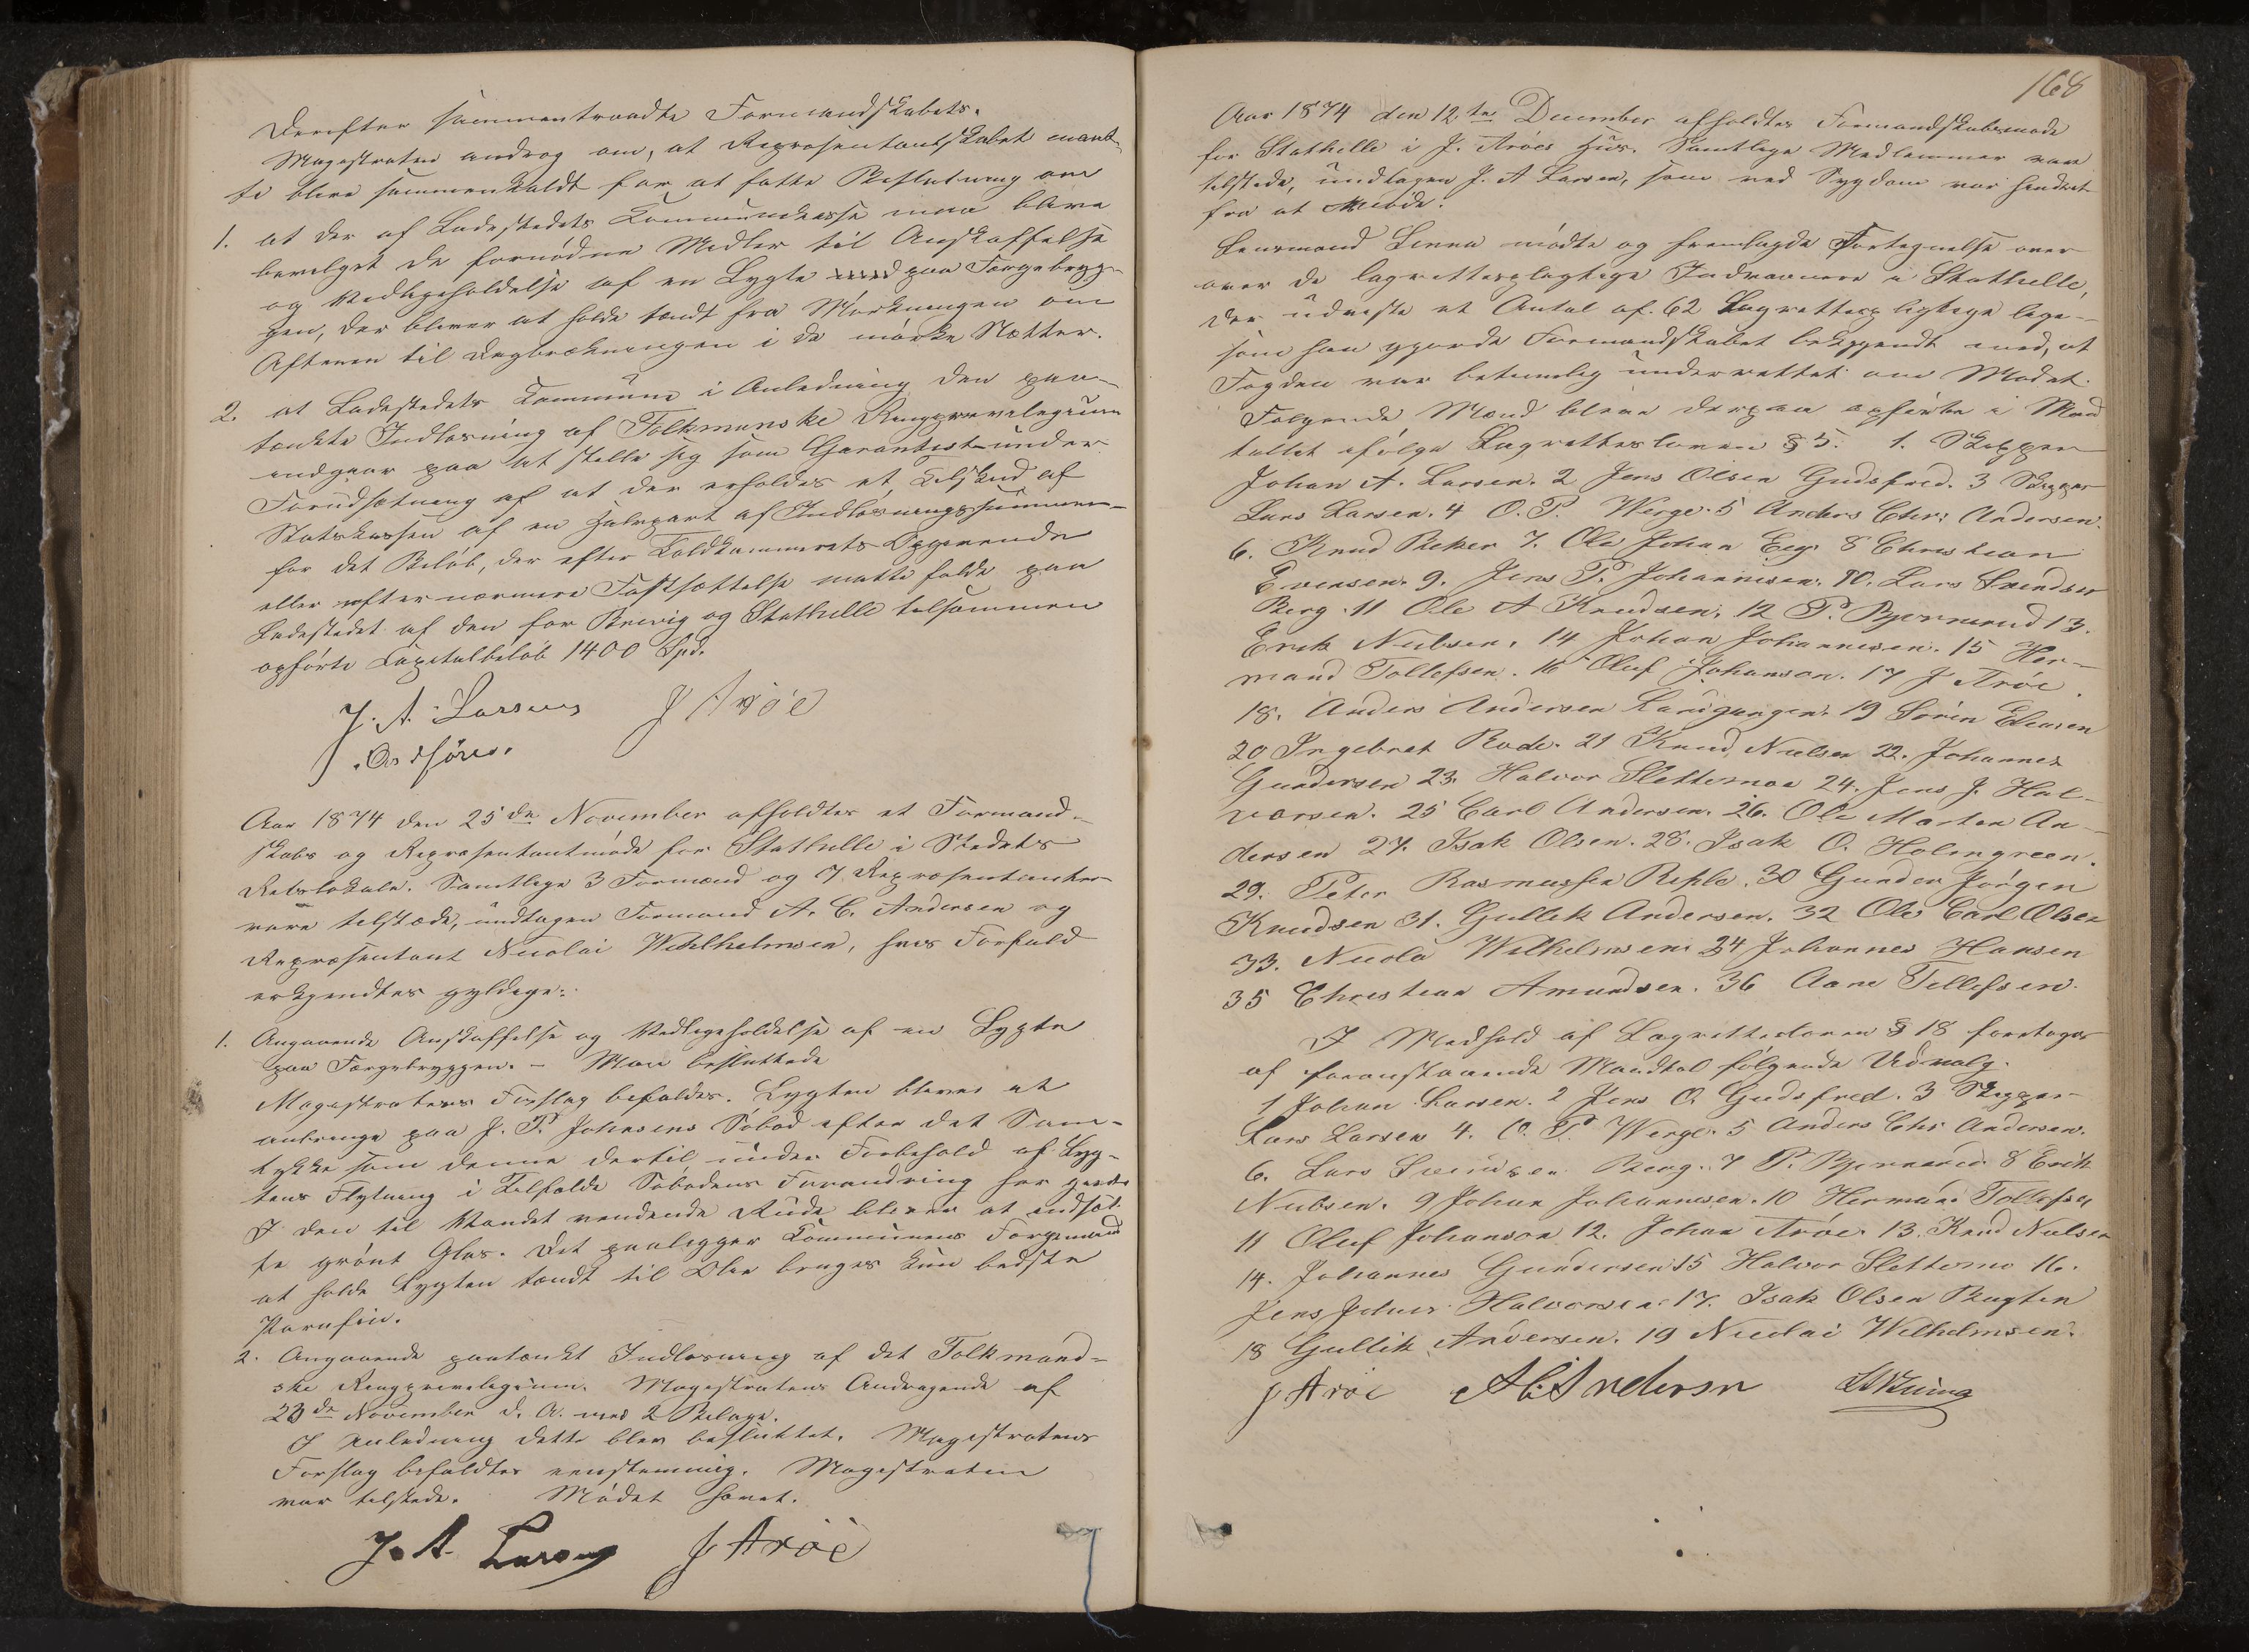 Derefter sammentraadte Formandskabet.
Magistraten androg om, at Repræsentantskabet maat-
te blive sammenkaldt for at fatte Beslutning om
1. at der af Ladestedets Kommunekasse maa blive
bevilget de fornødne Midler til Anskaffelse
og Vedligeholdelse af en Lygte paa Færgebryg-
gen, der bliver at holde tændt fra Mørkningen om
Aftenen til Dagbrækningen i de mørke Nætter.
2. at Ladestedets Kommune i Anledning den paa-
tænkte Indløsning af Folkmanske Ringprivilegium
indgaar paa at stille sig som Garantist under
Forudsætning af at der erholdes et Tilskud af
Statskassen af en Halvpart af Indløsningssummen
for det Beløb, der efter Toldkammerets Opgivende
eller efter nærmere Fastsættelse maatte falde paa
Ladestedet af den for Brevig og Stathelle tilsammen
opførte Kapitalbeløb 1400 Spd.
J. A. Larsen J Arøe
Ordfører.
Aar 1874 den 25de November afholdtes et Formand-
skabs og Repræsentantmøde for Stathelle i Stedets
Retslokale. Samtlige 3 Formænd og 7 Repræsentanter
vare tilstede, undtagen Formand A. C. Andersen og
Repræsentant Nicolai Wihlhelmsen, hvis Forfald
erkjendtes gyldige:
1. Angaaende Anskaffelse og Vedligeholdelse af en Lygte
paa Færgebryggen. – Man besluttede
Magistratens Forslag bifaldes. Lygten bliver at
anbringe paa J. P. Johnsens Søbod efter det Sam-
tykke som denne dertil under Forbehold af Lyg-
tens Flytning i Tilfælde Søbodens Forandring har
I den til Vandet vendende Rude bliver at indsæt-
te grønt Glas. Det paalegger Kommunens Færgemand
at holde Lygten tændt til Olie bruges kun bedste
Parafin.
2. Angaaende paatænkt Indløsning af det Folkmand-
ske Ringprivilegium. Magistratens Andragende af
23de November d. A. med 2 Bilage.
I Anledning dette blev besluttet. Magistratens
Forslag bifaldtes eenstemmig. Magistraten
var tilstede. Mødet hævet.
J. A. Larsen J Arøe
168
Aar 1874 den 12te December afholdtes Formandskabsmøde
for Stathelle i J. Arøes Huus. Samtlige Medlemmer vare
tilstede, undtagen J. A Larsen, som ved Sygdom var hindret
fra at Møde.
Lensmand Linna mødte og fremlagde Fortegnelse over
over de lagrettespligtige Indvaanere i Stathelle,
der udviste et Antal af 62 Lagrettespligtige lige-
som han gjorde Formandskabet bekjendt med, at
Fogden var betimelig underrettet om Mødet.
Følgende Mænd bleve derpaa opførte i Mand
tallet ifølge Lagretteloven § 5. 1. Skipper
Johan A. Larsen. 2 Jens Olsen Gudsfred. 3 Skipper
Lars Larsen. 4 O. P. Werge. 5 Anders Chr: Andersen.
6. Knud Reker 7. Ole Johan Eeg. 8 Christian
Evensen. 9. Jens P. Johannesen. 10. Lars Svendsen
Berg. 11 Ole A Knudsen. 12 P. Bjerrerud 13.
Erik Nielsen. 14 Johan Johannesen. 15 Her-
mand Tollefsen. 16 Oluf Johanson. 17 J Arøe.
18. Anders Andersen Landgangen. 19 Søren Eliasen
20 Ingebret Rode. 21 Knud Nielsen 22. Johannes
Gundersen 23. Halvor Slettemoe 24. Jens J. Hal-
vorsen. 25 Carl Andersen. 26. Ole Marten An-
dersen 27. Isak Olsen. 28. Isak O. Holmgreen.
29. Peter Rasmussen 30 Gunder Jørgen
Knudsen 31. Gullik Andersen. 32 Ole Carl Olsen
33. Nicola Wilhelmsen 34 Johannes Hansen
35 Christian Amundsen. 36 Aane Tellefsen.
I Medhold af Lagretteloven § 18 foretoges
af foranstaaende Mandtal følgende Udvalg.
1 Johan Larsen. 2 Jens O. Gudsfred. 3 Skipper
Lars Larsen 4. O. P. Werge. 5 Anders Chr Andersen.
6. Lars Svendsen Berg. 7 P. Bjerrerud 8 Erik
Nielsen. 9 Johan Johannesen. 10 Herman Tollefsen
11 Oluf Johanson 12. Johan Arøe. 13. Knud Nielsen
14. Johannes Gundersen 15 Halvor Slettemo 16.
Jens Johns Halvorsen. 17. Isak Olsen Bugten
18 Gullik Andersen. 19 Nicolai Wilhelmsen.
J Arøe A C Andersen